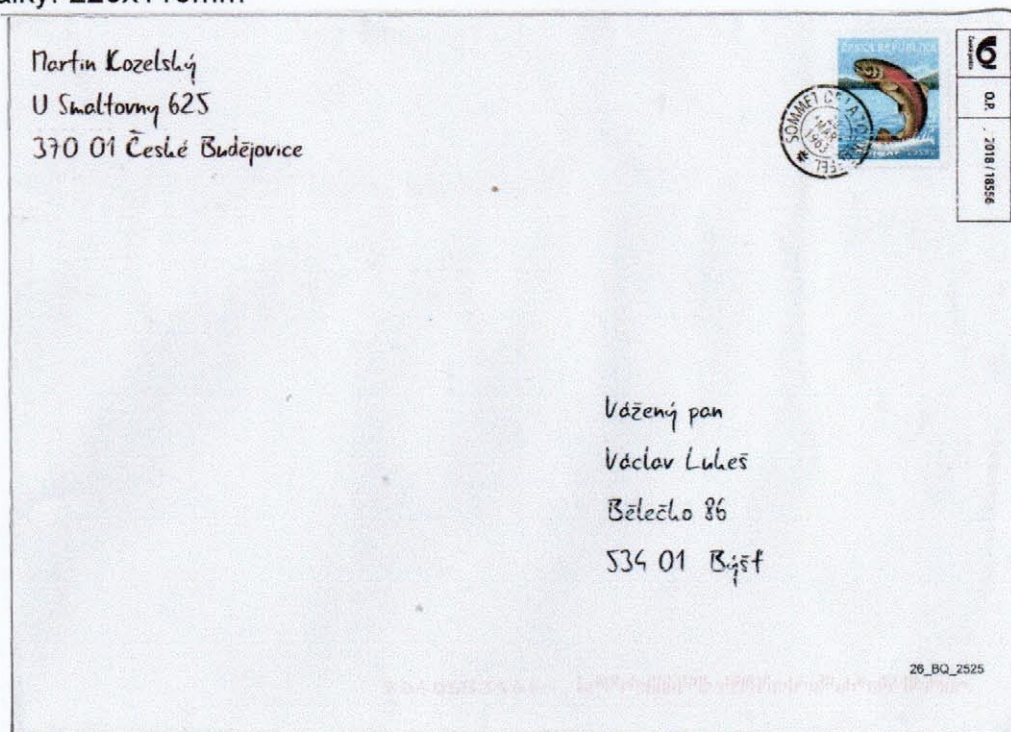 220x110mm
Martin Kozelský
U Smaltovny 625
370 01 České Budějovice
ČESKÁ REPUBLIKA
SOMMET DE LA
MAR
1963
Česká pošta
O.P.
2018 / 18556
Vážený pan
Václav Lukeš
Bělečko 86
534 01 Býšť
26_BQ_2525